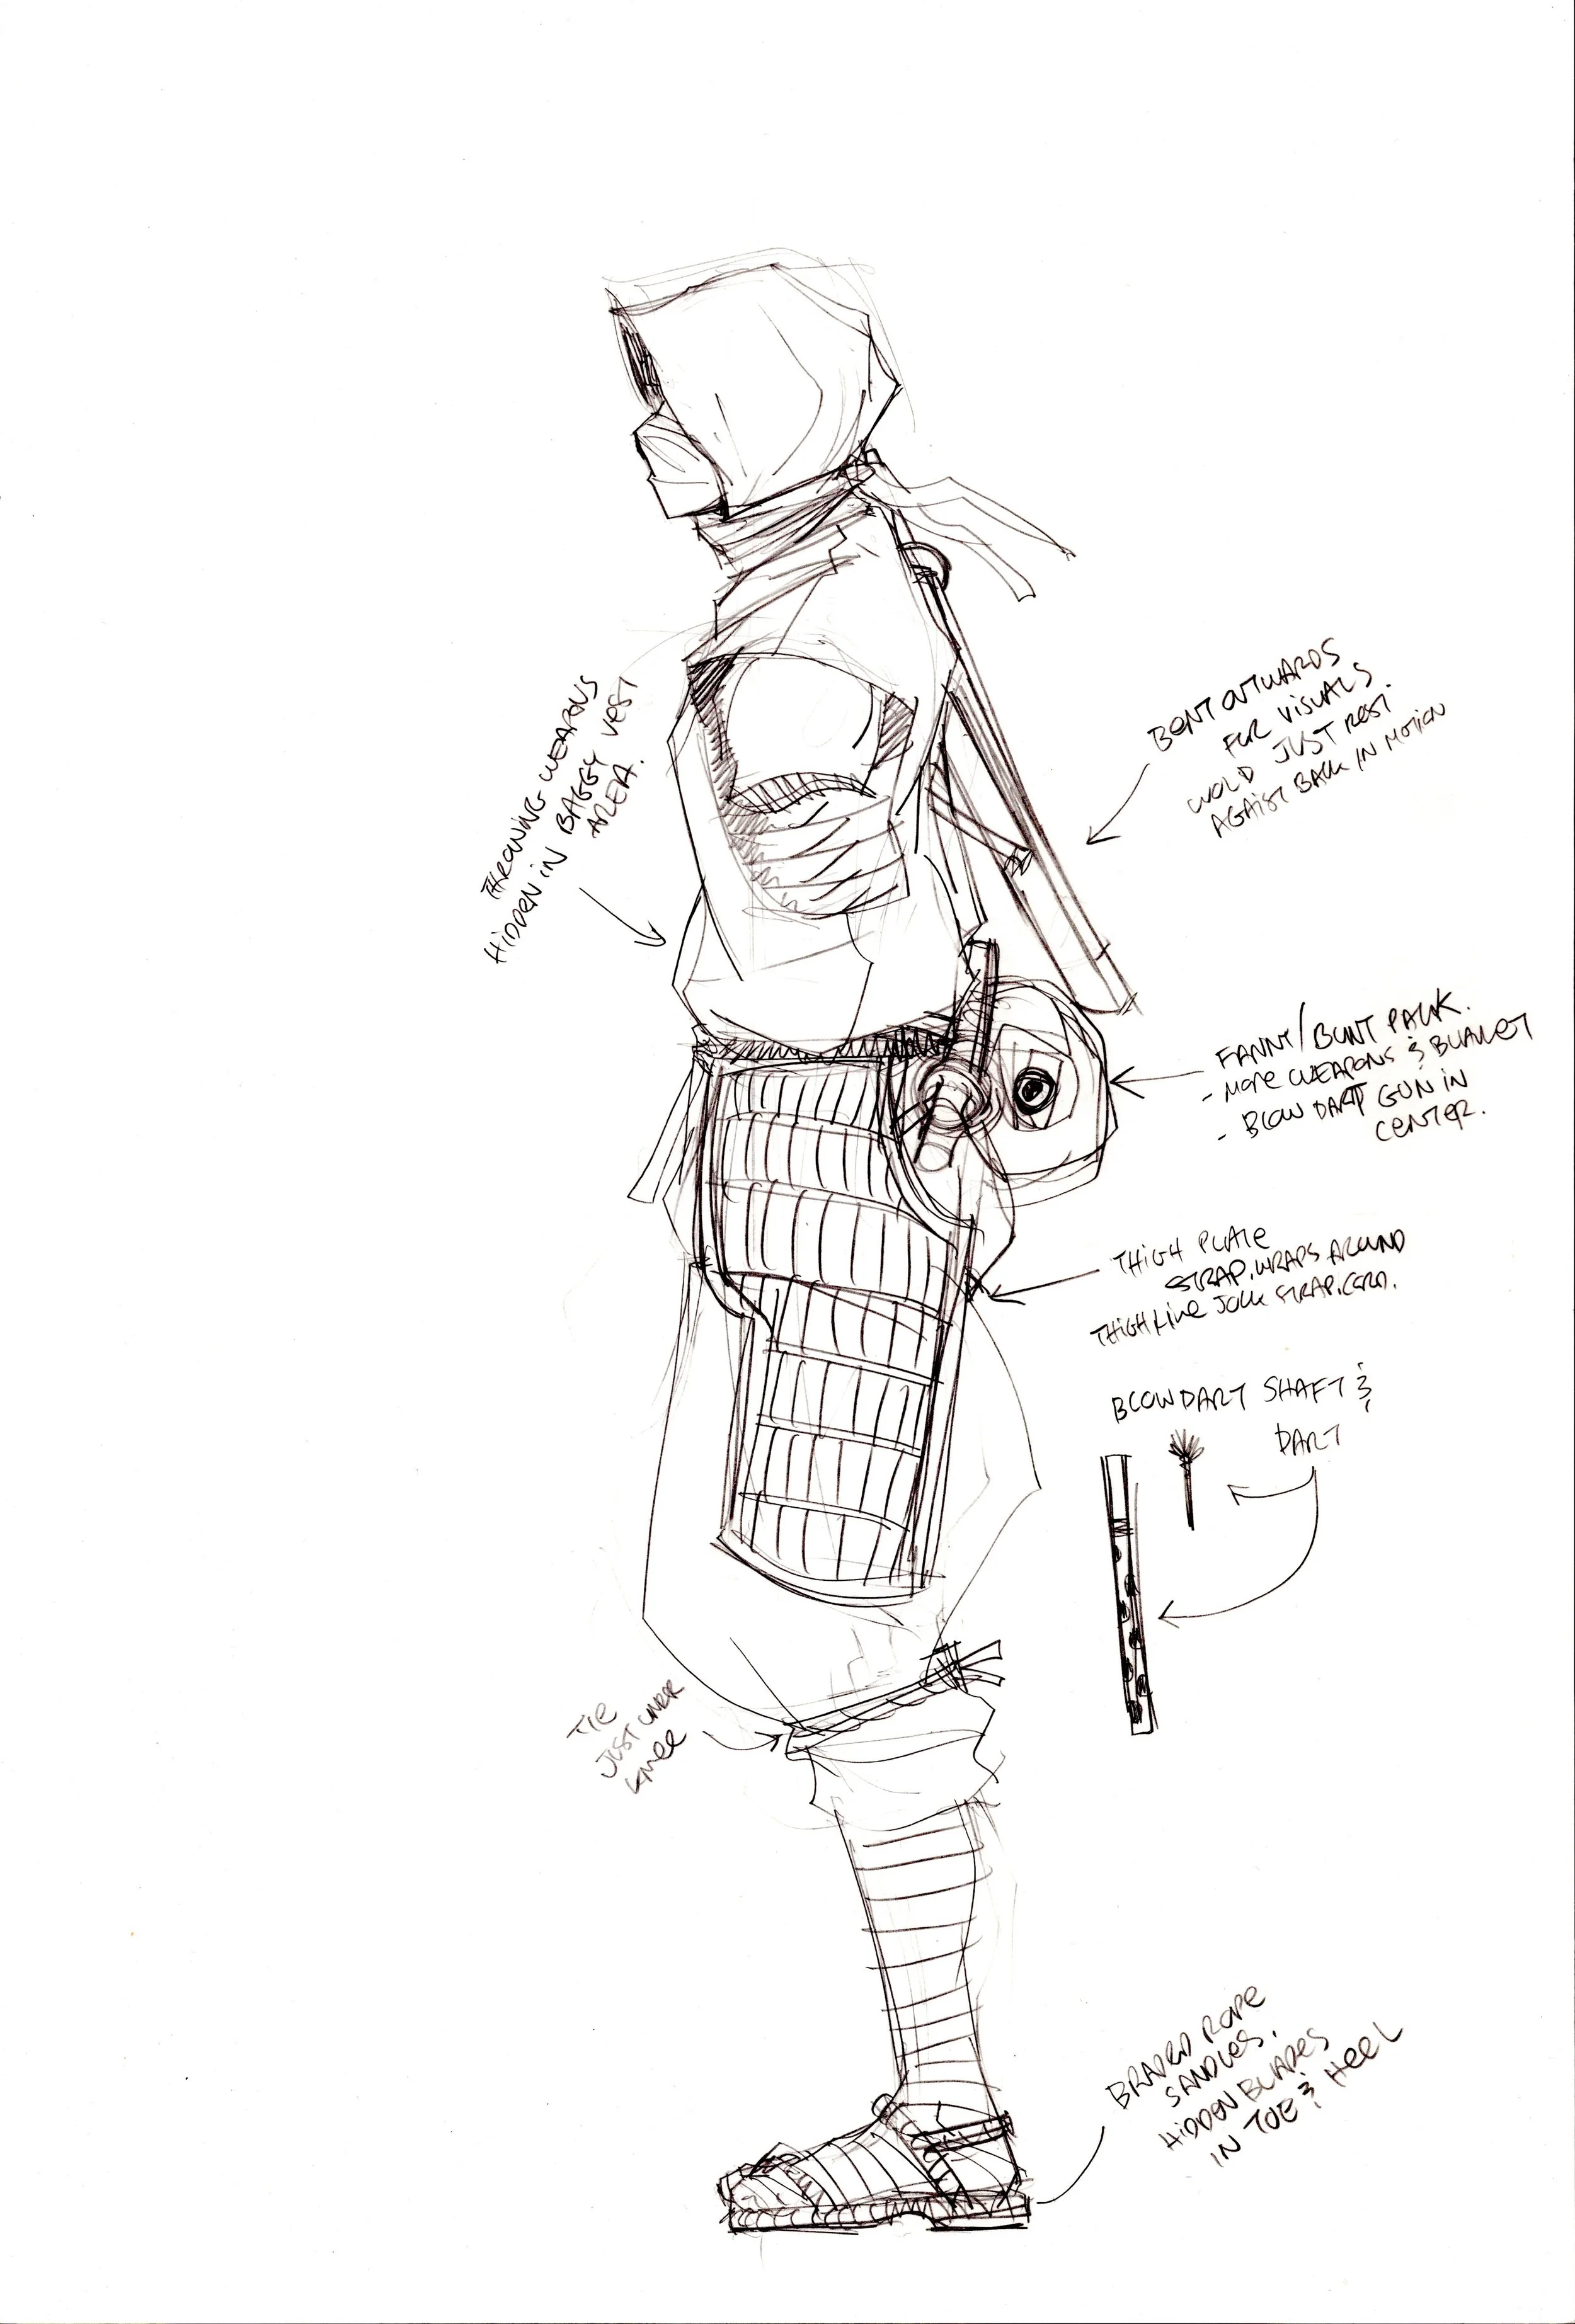 THROWING WEAPONS
HIDDEN IN BAGGY VEST
AREA.
BENT OUTWARDS
FOR VISUALS.
WOLD JUST REST
AGAIST BACK IN MOTION
FANNY/BUNT PACK.
- MORE WEAPONS & BLANKET
- BLOW DART GUN IN
CENTER.
THIGH PLATE
STRAP. WRAPS AROUND
THIGH LIKE JOCK STRAP. CORD.
BLOW DART SHAFT &
DART
TIE
JUST UNDER
KNEE
BRAIDED ROPE
SANDLES.
HIDDEN BLADES
IN TOE & HEEL